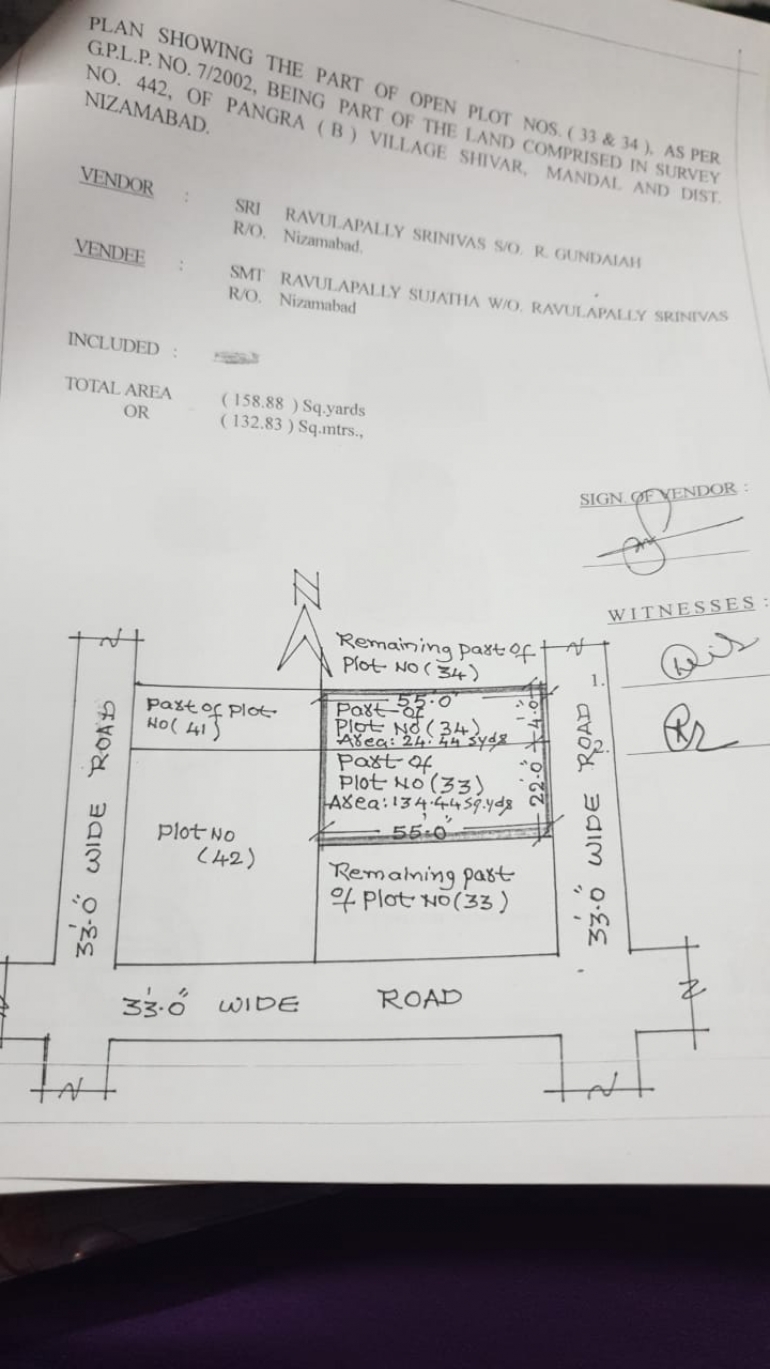 PLAN SHOWING THE PART OF OPEN PLOT NOS. ( 33 & 34 ). AS PER
G.P.L.P. NO. 7/2002, BEING PART OF THE LAND COMPRISED IN SURVEY
NO. 442, OF PANGRA ( B ) VILLAGE SHIVAR, MANDAL AND DIST.
NIZAMABAD.
VENDOR : SRI RAVULAPALLY SRINIVAS S/O. R. GUNDAIAH
R/O. Nizamabad.
VENDEE : SMT RAVULAPALLY SUJATHA W/O. RAVULAPALLY SRINIVAS
R/O. Nizamabad
INCLUDED :
TOTAL AREA ( 158.88 ) Sq.yards
OR ( 132.83 ) Sq.mtrs.,
SIGN. OF VENDOR :
WITNESSES :
1.
2.
N
Remaining part of
Plot NO (34)
55'.0"
Part of
Plot NO (34)
Area: 24.44 syds
4'.0"
Part of Plot
NO( 41)
Part of
Plot NO (33)
Area: 134.44 sq.yds
22'.0"
55'.0"
Plot NO
(42)
Remaining part
of Plot NO (33)
33'.0" WIDE ROAD
33'.0" WIDE ROAD
33'.0" WIDE ROAD